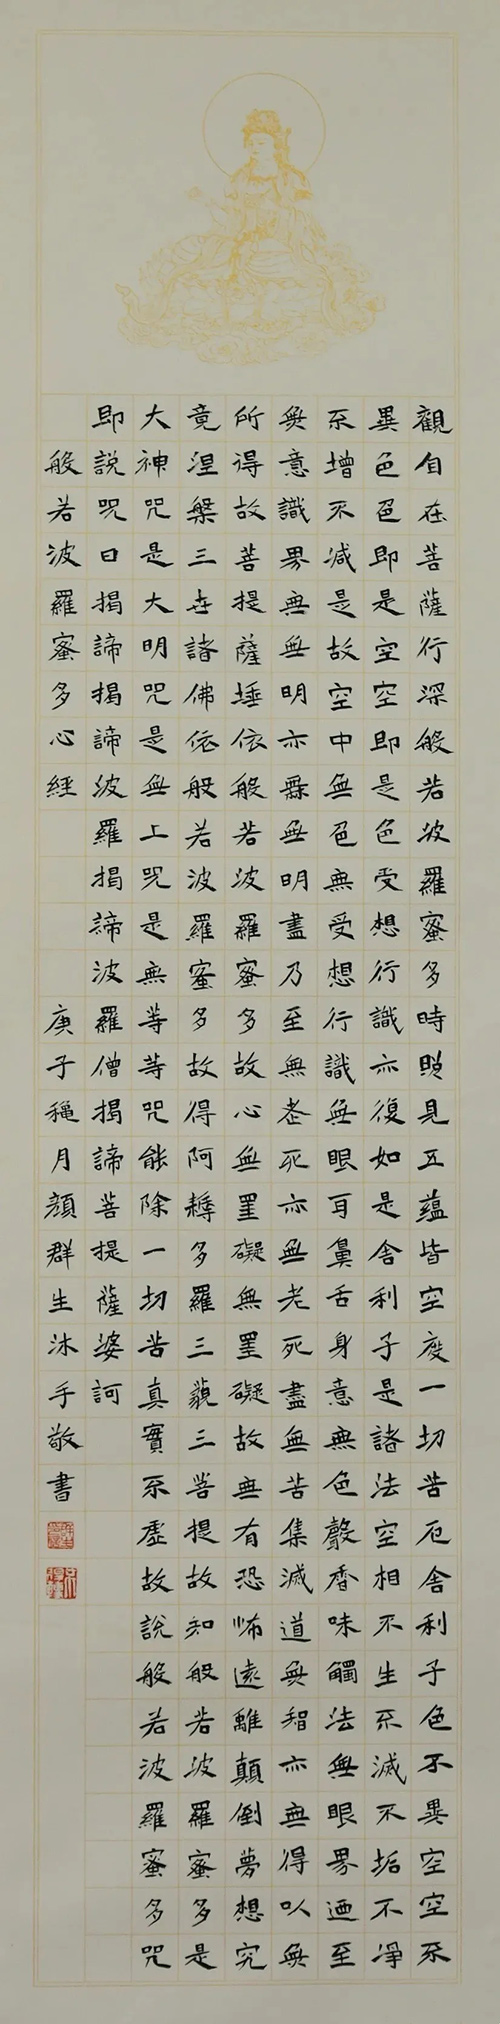 觀自在菩薩行深般若波羅蜜多時照見五蘊皆空度一切苦厄舍利子色不異空空不
異色色即是空空即是色受想行識亦復如是舍利子是諸法空相不生不滅不垢不淨
不增不減是故空中無色無受想行識無眼耳鼻舌身意無色聲香味觸法無眼界迺至
無意識界無無明亦無無明盡乃至無老死亦無老死盡無苦集滅道無智亦無得以無
所得故菩提薩埵依般若波羅蜜多故心無罣礙無罣礙故無有恐怖遠離顛倒夢想究
竟涅槃三世諸佛依般若波羅蜜多故得阿耨多羅三藐三菩提故知般若波羅蜜多是
大神咒是大明咒是無上咒是無等等咒能除一切苦真實不虛故說般若波羅蜜多咒
即說咒曰揭諦揭諦波羅揭諦波羅僧揭諦菩提薩婆訶
般若波羅蜜多心經 庚子穐月顏群生沐手敬書